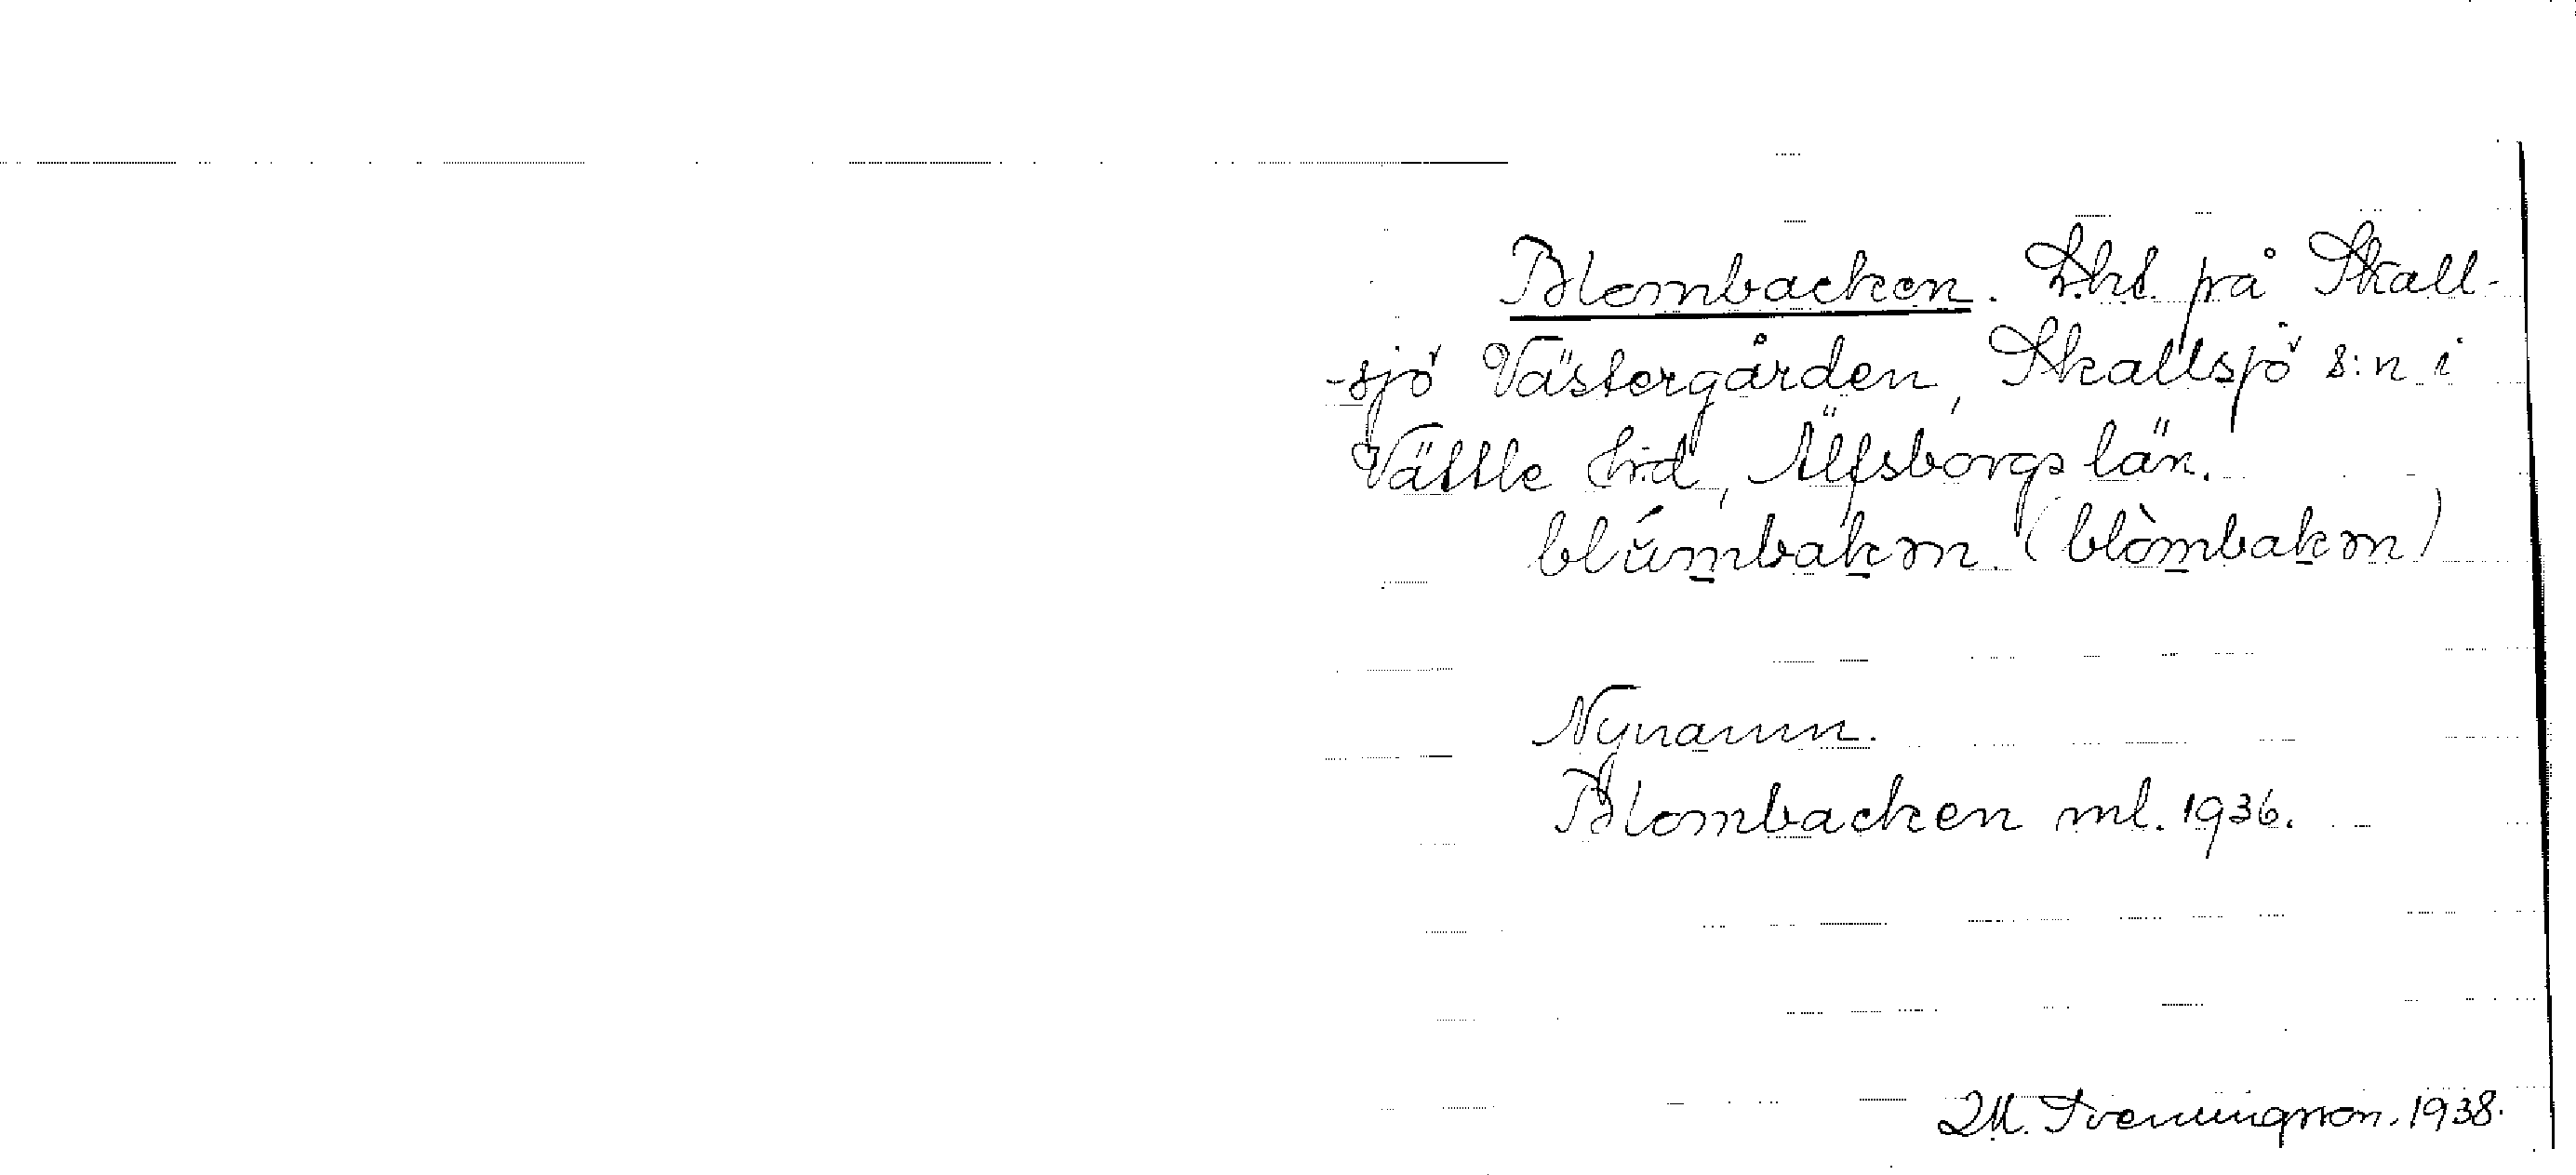 Blombacken. Lht. på Skall-
-sjö Västergården, Skallsjö s:n i
Vättle hrd, Älfsborgs län.
blúmbakən. (blòmbakən)
Nynamn.
Blombacken ml. 1936.
M. Svenningson. 1938.